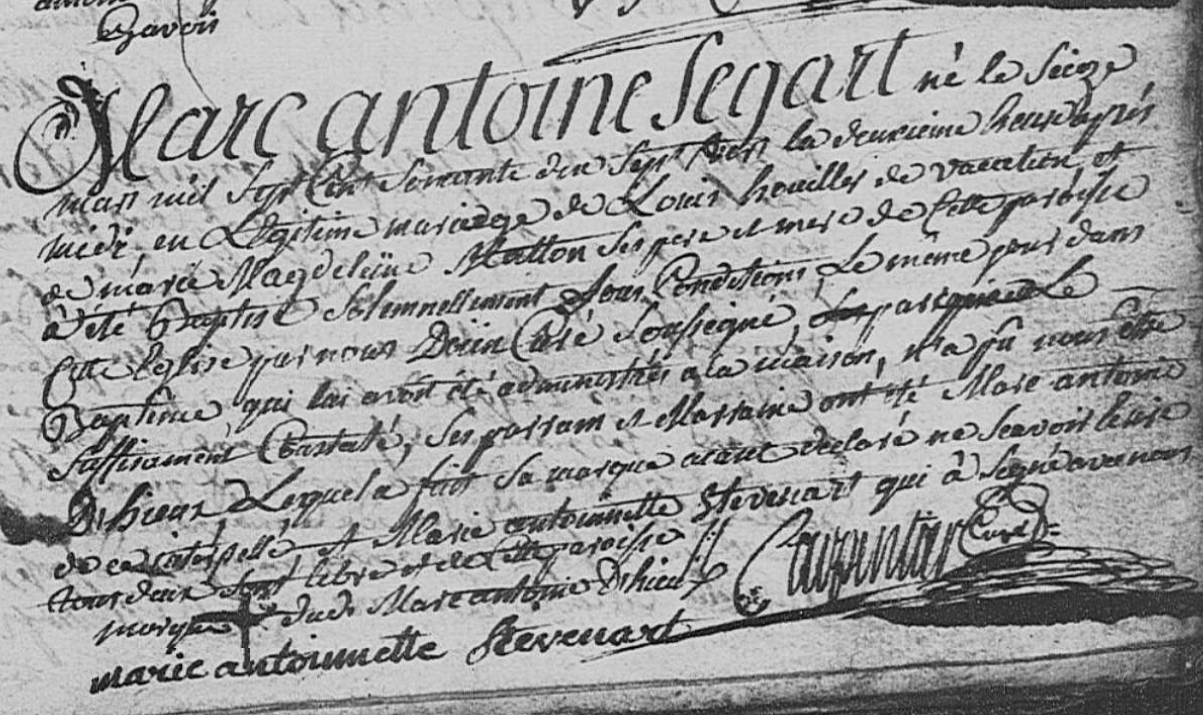 Gavois
Marc antoine Segart né le Seize
mars mil Sept Cent Soixante dix Sept vers la deuxieme heure après
midi, en Légitime mariage de Louis houiller de vacation, et
de marie Magdeleine Matton Ses pere et mere de Cette paroisse
à été Baptisé Solemnellement Sous Condition, Le même jour dans
Cette Eglise par nous Curé Soussigné, parce que Le
Baptême qui lui avoit été administré a la maison, n'a pu nous être
Suffisament Constaté, Ses parrain et Marraine ont été Marc antoine
Dhieux Lequel a fait Sa marque aiant declaré ne Scavoir Ecrire
de ce interpellé, et Marie antoinnette Stevenart qui à Signé avec nous
tous deux Sont libre et de Cette paroisse
marque dudt Marc antoine Dhieux Carpentier Curé
marie antoinnette Stevenart